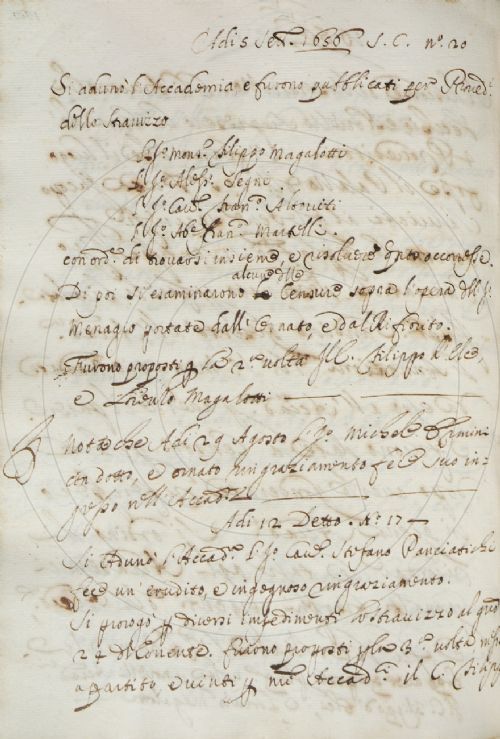 Adi 5 Set. 1656 S. C. nº. 20
Si adunò l'Accademia, e furono pubblicati per Rived.
dello stravizzo
Sig. Mons. Filippo Magalotti
Il Sig. Aless. Segni
Il Sig. Cav. Fran. Altoviti
Il Sig. Ab. Fran. Martelli.
con ord. di trovarsi insieme, e risolvere qnto occoresse.
alcune dlle
Di poi si esaminarono le Censure sopra l'opera dll Sig.
Menagio portate dall' Ce nato, e dal Rifiorito.
Furono proposti p la 2ª volta Filippo
e Lorenzo Magalotti
Nota che Adi 29 Agosto Il Sig. Michele Ermini
con dotto, e ornato ringraziamento fece suo in-
gresso nell' Accad.
Adi 12 Detto. Nº. 17
Si Adunò l'Accad. Il Sig. Cav. Stefano Panciatichi
fece un' erudito, e ingegnoso ringraziamento.
Si prorogò p diversi impedimenti lo stravizzo al
24 del Corrente. Furono proposti p la 3ª volta
a partito, e vinti p Accad. il